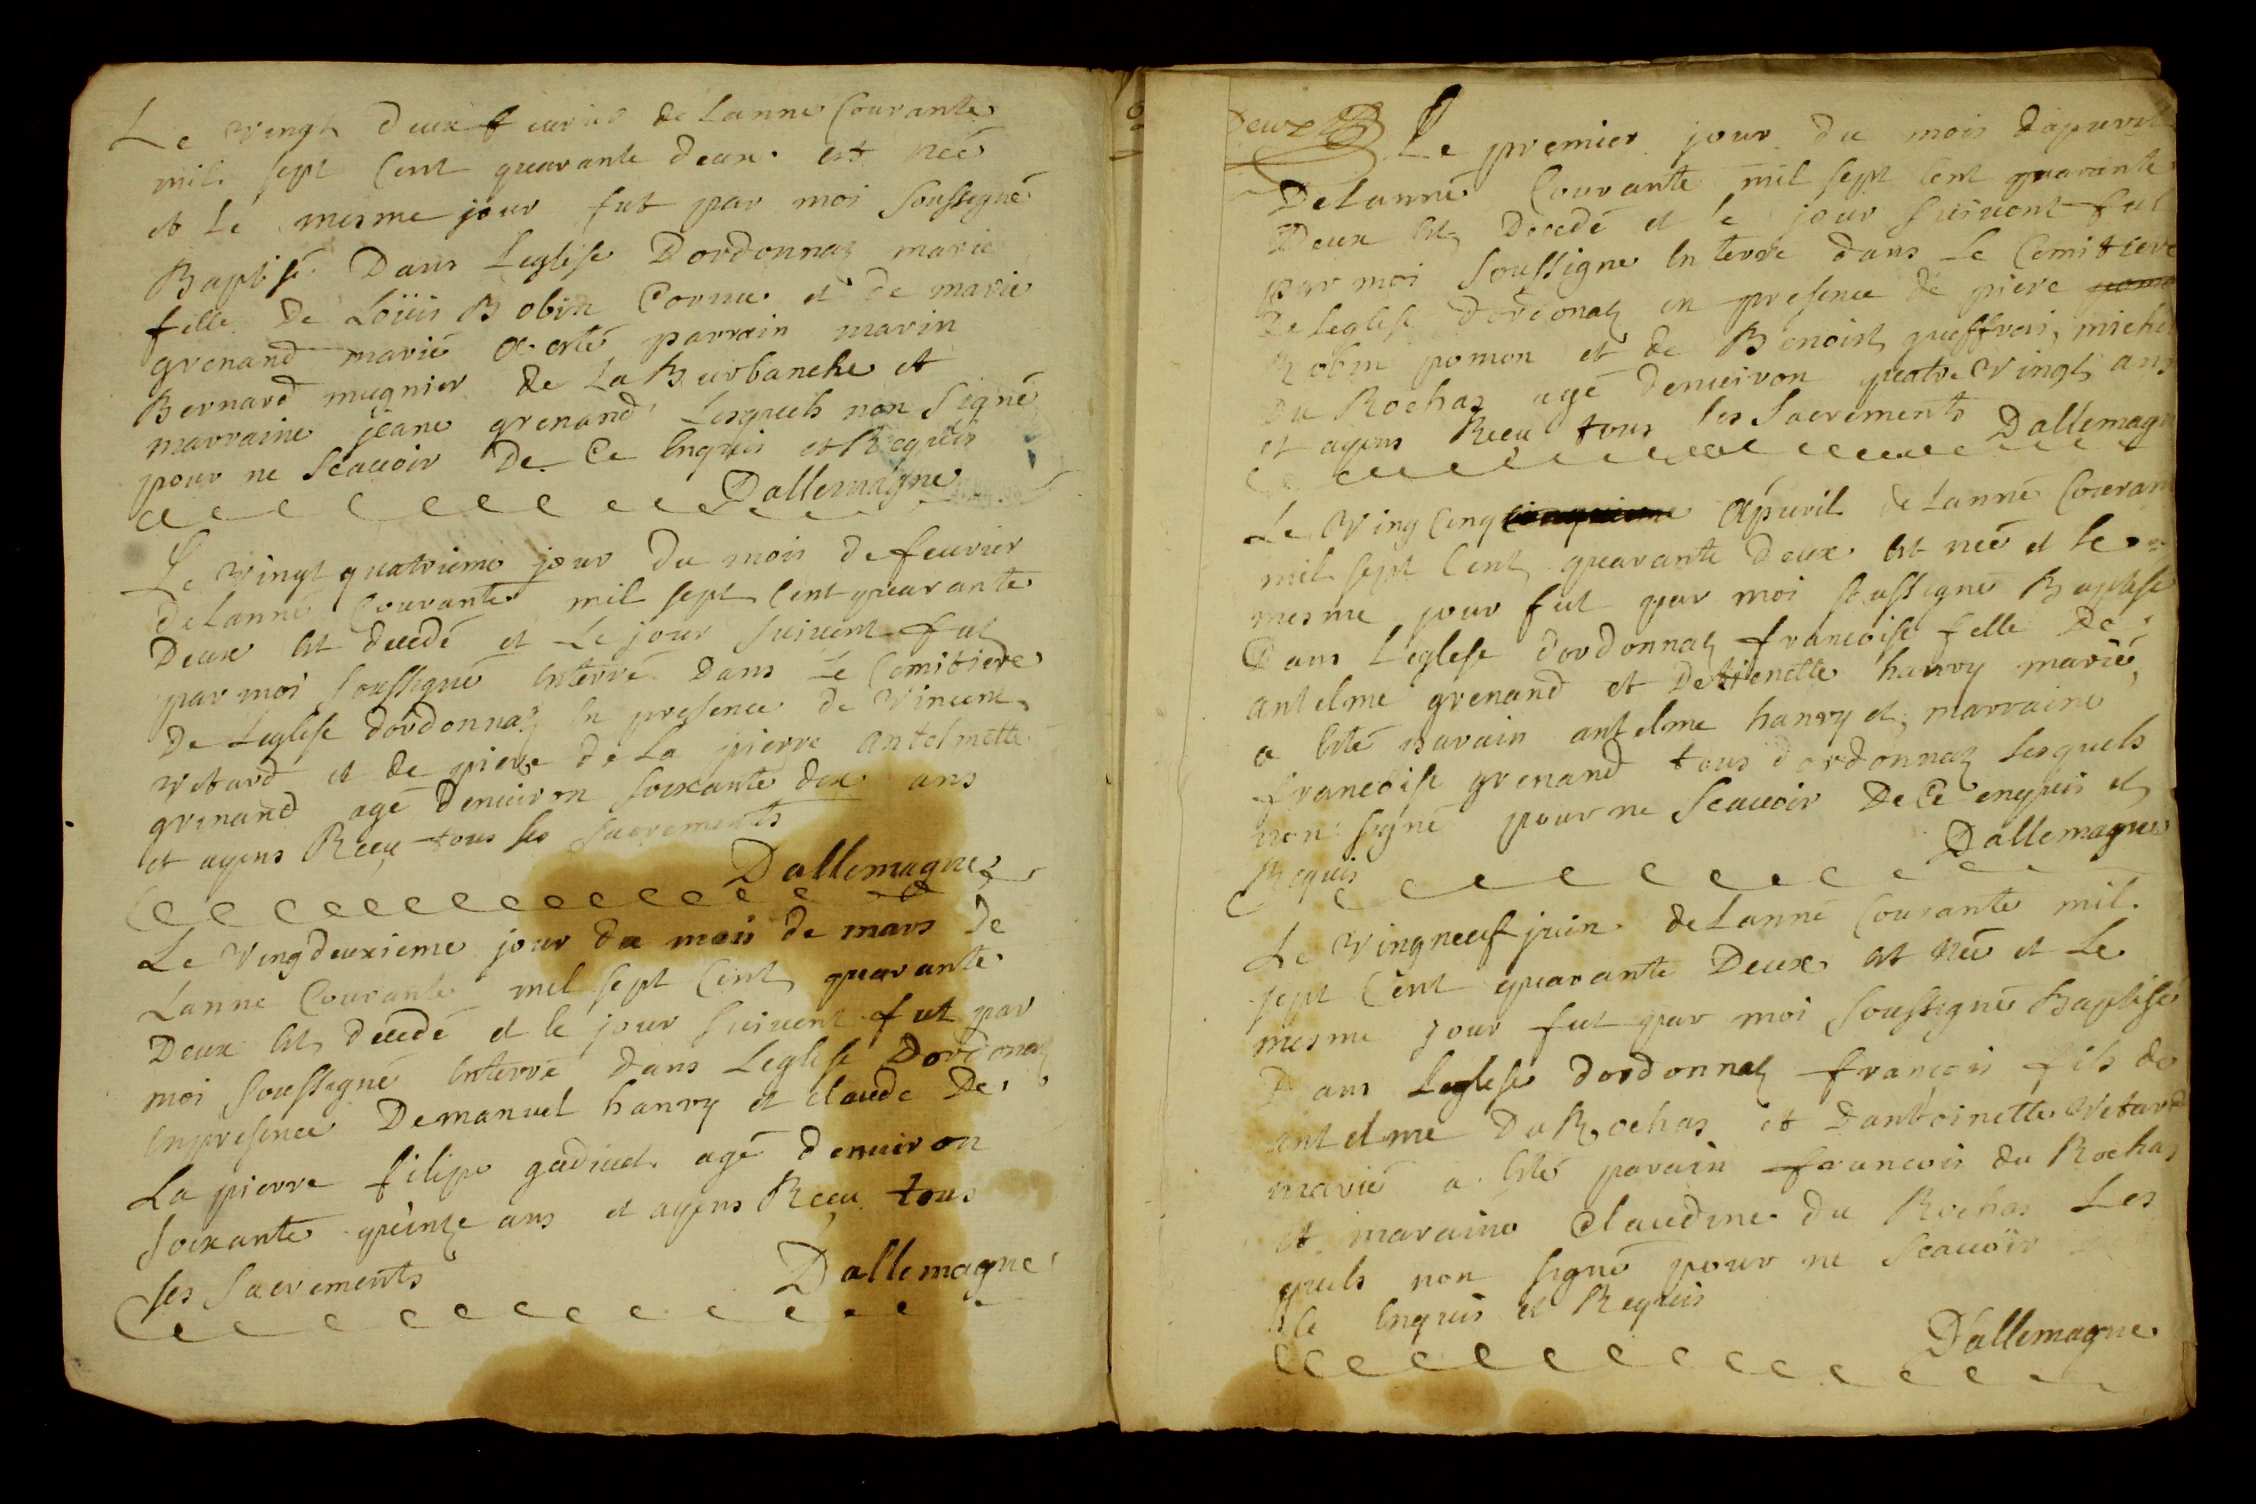 Le vingt deux feurier de Lanne Courante
mil sept Cent quarante deux est neé
et Le mesme jour fut par moi soussigné
Baptisé Dans Leglise Dordonnaz marie
fille De Loüis Bobin Cornu et de marie
grenand marié a esté parrain marin
Bernard mugnier de La Burbanche et
marraine jeane grenand Lesquels non signé
pour ne scauoir De Ce Enquis et Requis
Dallemagne
Le vingt quatrieme jour Du mois de feurier
de Lanné Courante mil sept Cent quarante
Deux Est decedé et Le jour suiuent fut
par moi soussigné Enterré Dans Le Cemitiere
De Leglise dordonnaz En presence de vincent
vetard et de piere de La pierre antelmette
grenand agé denuiron soixante dix ans
et ayens Receu tous les sacrements
Dallemagne
Le vingdeuxieme jour du mois de mars De
Lanne Courante mil sept Cent quarante
Deux Est decedé et le jour suiuent fut par
moi soussigné Enterré dans Leglise Dordonaz
Enpresence Demanuel hanry et claude De
La pierre filipe gadiuet agé denuiron
soixante quinze ans et ayens Receu tous
ses sacrements
Dallemagne
Deux
Le premier jour du mois dapuril
DeLanné Courante mil sept Cent quarante
Deux Est Decedé et le jour suiuent fut
par moi soussigne Enterré dans Le Cemitiere
De Leglise dordonaz en presence de piere
Robin pomon et de Benoist gueffroi, michel
du Rochas agé denuiron quatre vingt ans
et ayens Receu tous les sacrements
Dallemagne
Le ving Cinq apuril de Lanné Courante
mil sept Cent quarante Deux Est neé et Le
mesme jour fut par moi soussigné Baptisé
Dans Leglise dordonnaz francoise fille De
antelme grenand et Detienette hanry marié
a Esté parain antelme hanry et marraine
francoise grenand tous dordonnaz Lesquels
non signé pour ne scauoir De Ce enquis et
Requis
Dallemagne
Le vingneuf juin de Lanné Courante mil
sept Cent quarante Deux est neé et Le
mesme jour fut par moi soussigné Baptisé
Dans Leglise dordonnaz françois fils de
antelme Du Rochas et dantoinette vetard
marié a Esté parain francois du Rochas
et maraine Claudine du Rochas Les
quels non signé pour ne scauoir
Enquis et Requis
Dallemagne